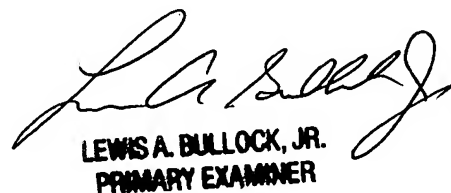 Lewis A. Bullock, Jr.
LEWIS A. BULLOCK, JR.
PRIMARY EXAMINER